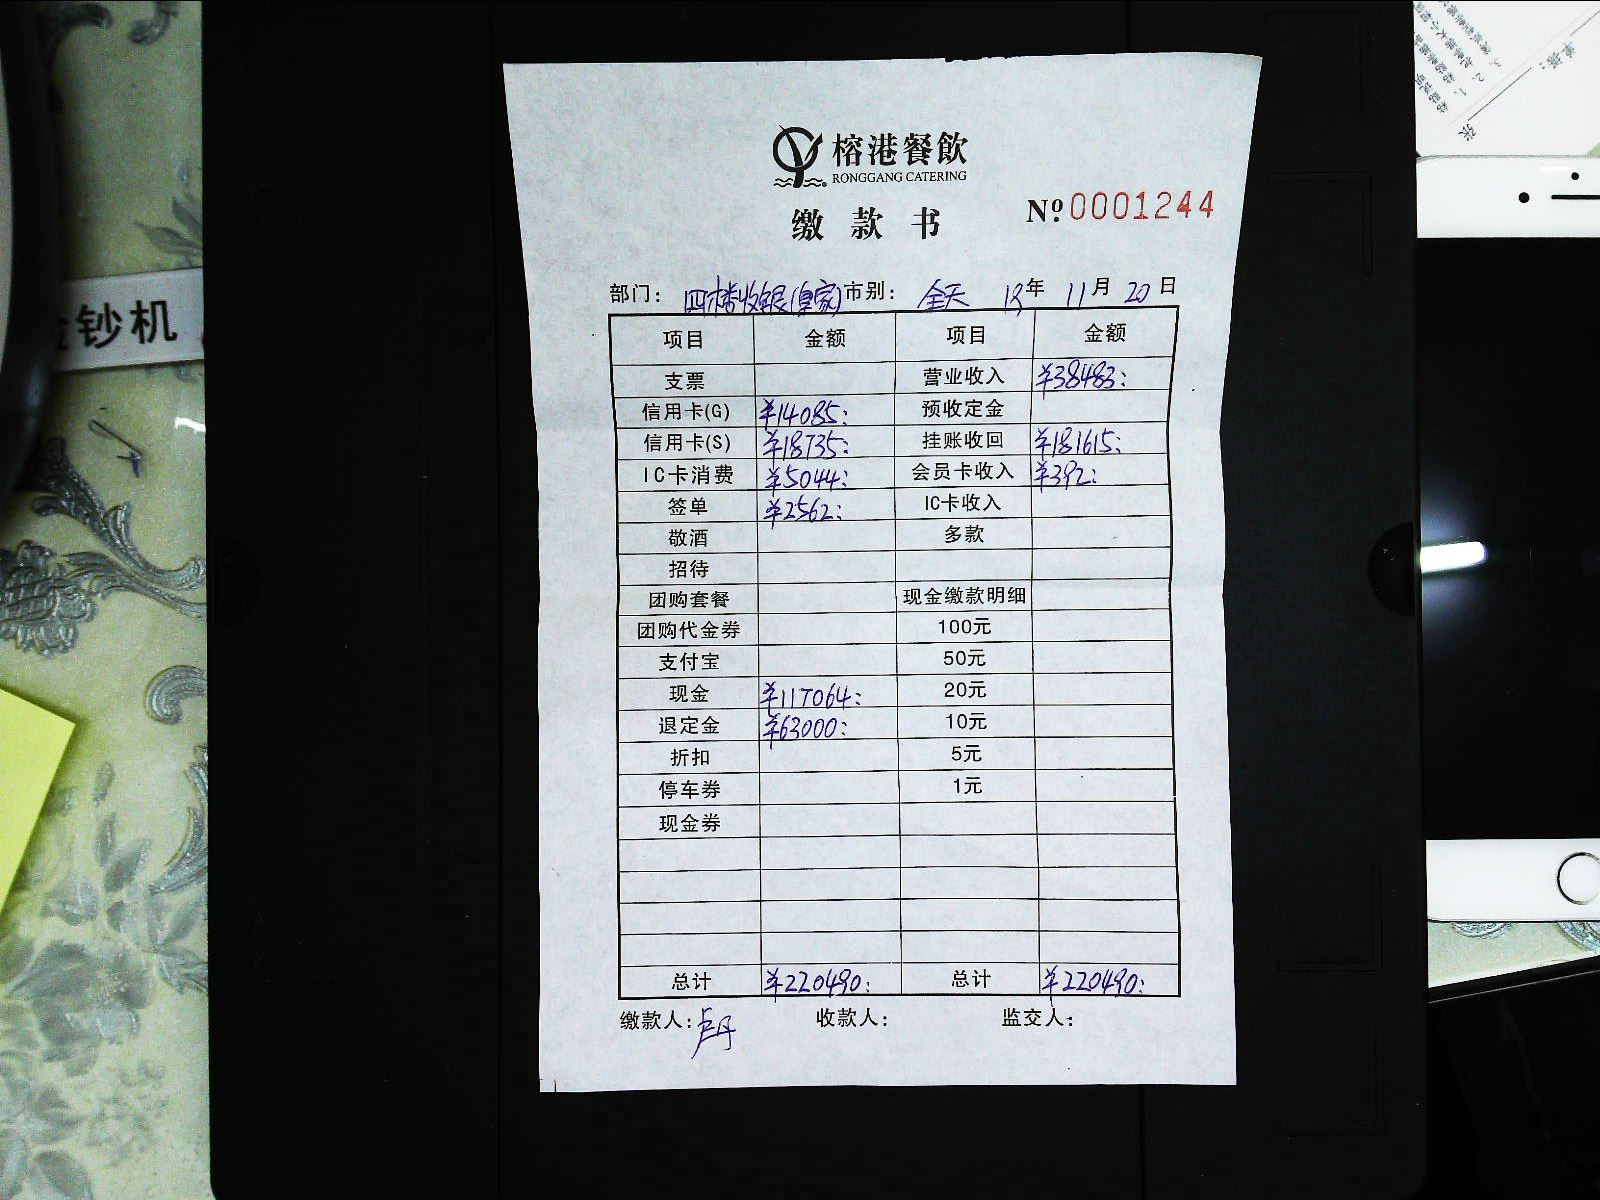 榕港餐飲
RONGGANG CATERING
缴款书
№ 0001244
部门: 四楼收银(皇家) 市别: 全天 18年 11月 20日
项目 金额 项目 金额
支票 营业收入 ¥38483:
信用卡(G) ¥14085: 预收定金
信用卡(S) ¥18735: 挂账收回 ¥181615:
IC卡消费 ¥5044: 会员卡收入 ¥392:
签单 ¥2562: IC卡收入
敬酒 多款
招待
团购套餐 现金缴款明细
团购代金券 100元
支付宝 50元
现金 ¥117064: 20元
退定金 ¥63000: 10元
折扣 5元
停车券 1元
现金券
总计 ¥220490: 总计 ¥220490:
缴款人: 卢丹 收款人: 监交人:
钞机